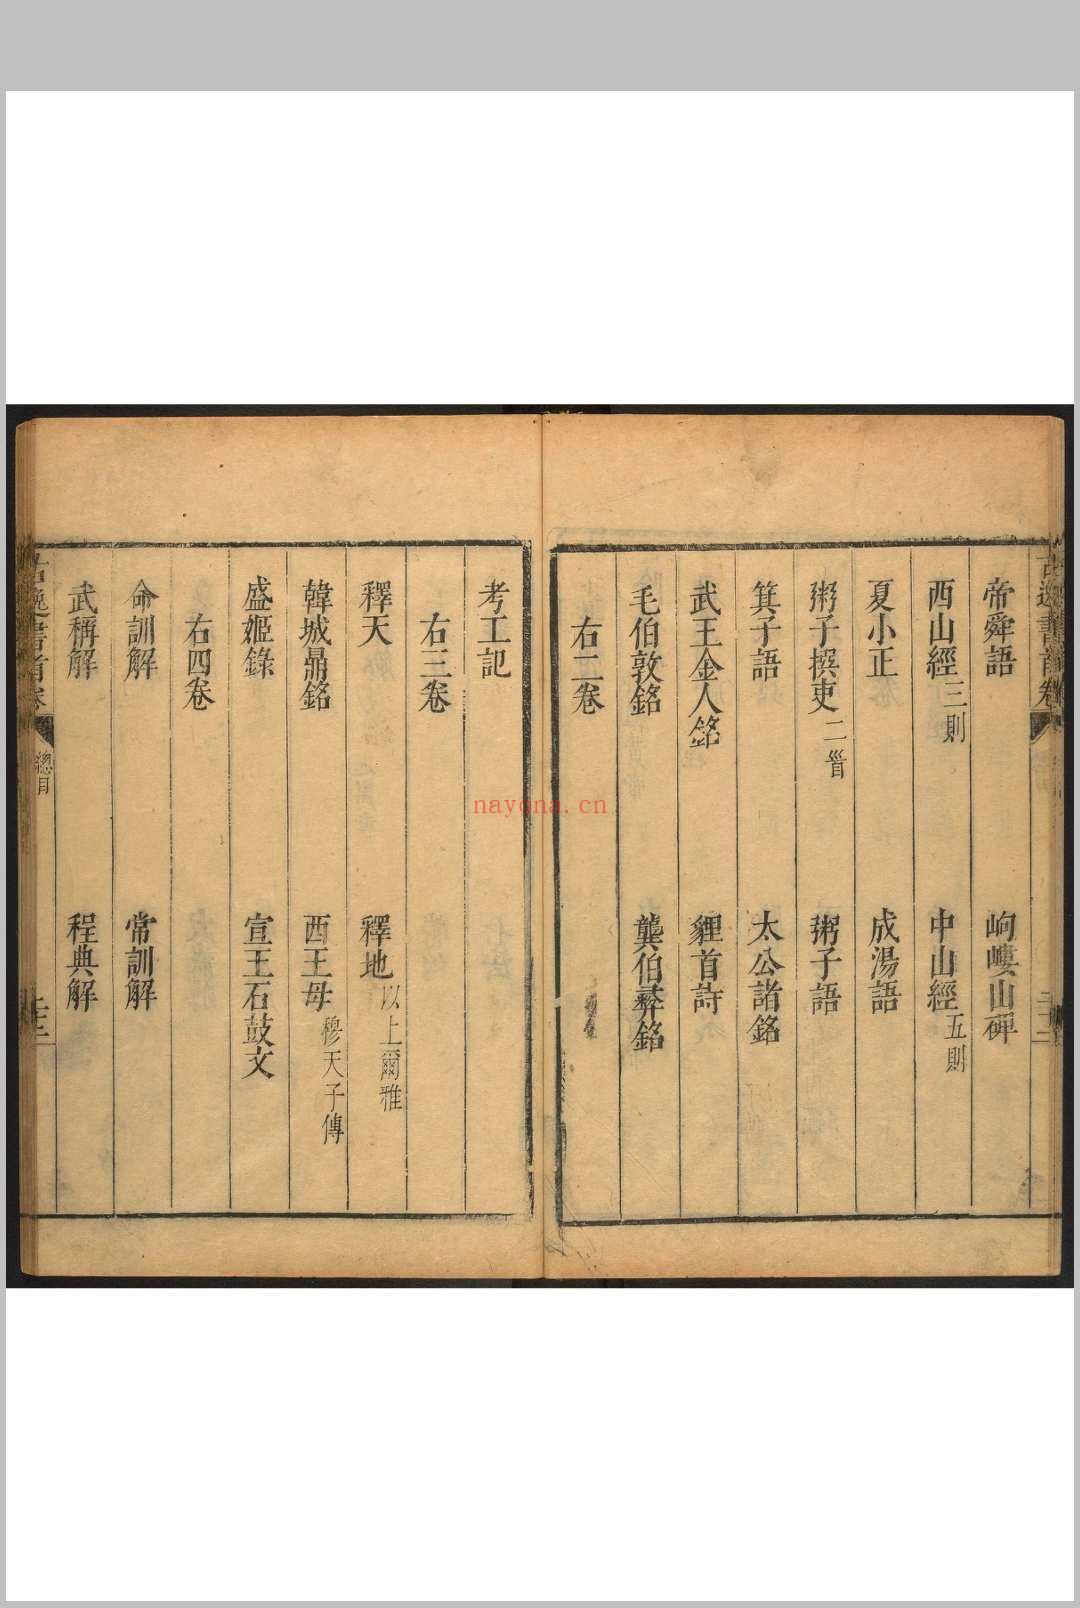 古逸書首卷
帝舜語　岣嶁山碑
西山經三則　中山經五則
夏小正　成湯語
粥子撰吏二首　粥子語
箕子語　太公諸銘
武王金人銘　貍首詩
毛伯敦銘　龔伯彝銘
右二卷
考工記
右三卷
釋天　釋地以上爾雅
韓城鼎銘　西王母穆天子傳
盛姬錄　宣王石鼓文
右四卷
命訓解　常訓解
武稱解　程典解
古逸書首卷　總目
nayona.cn